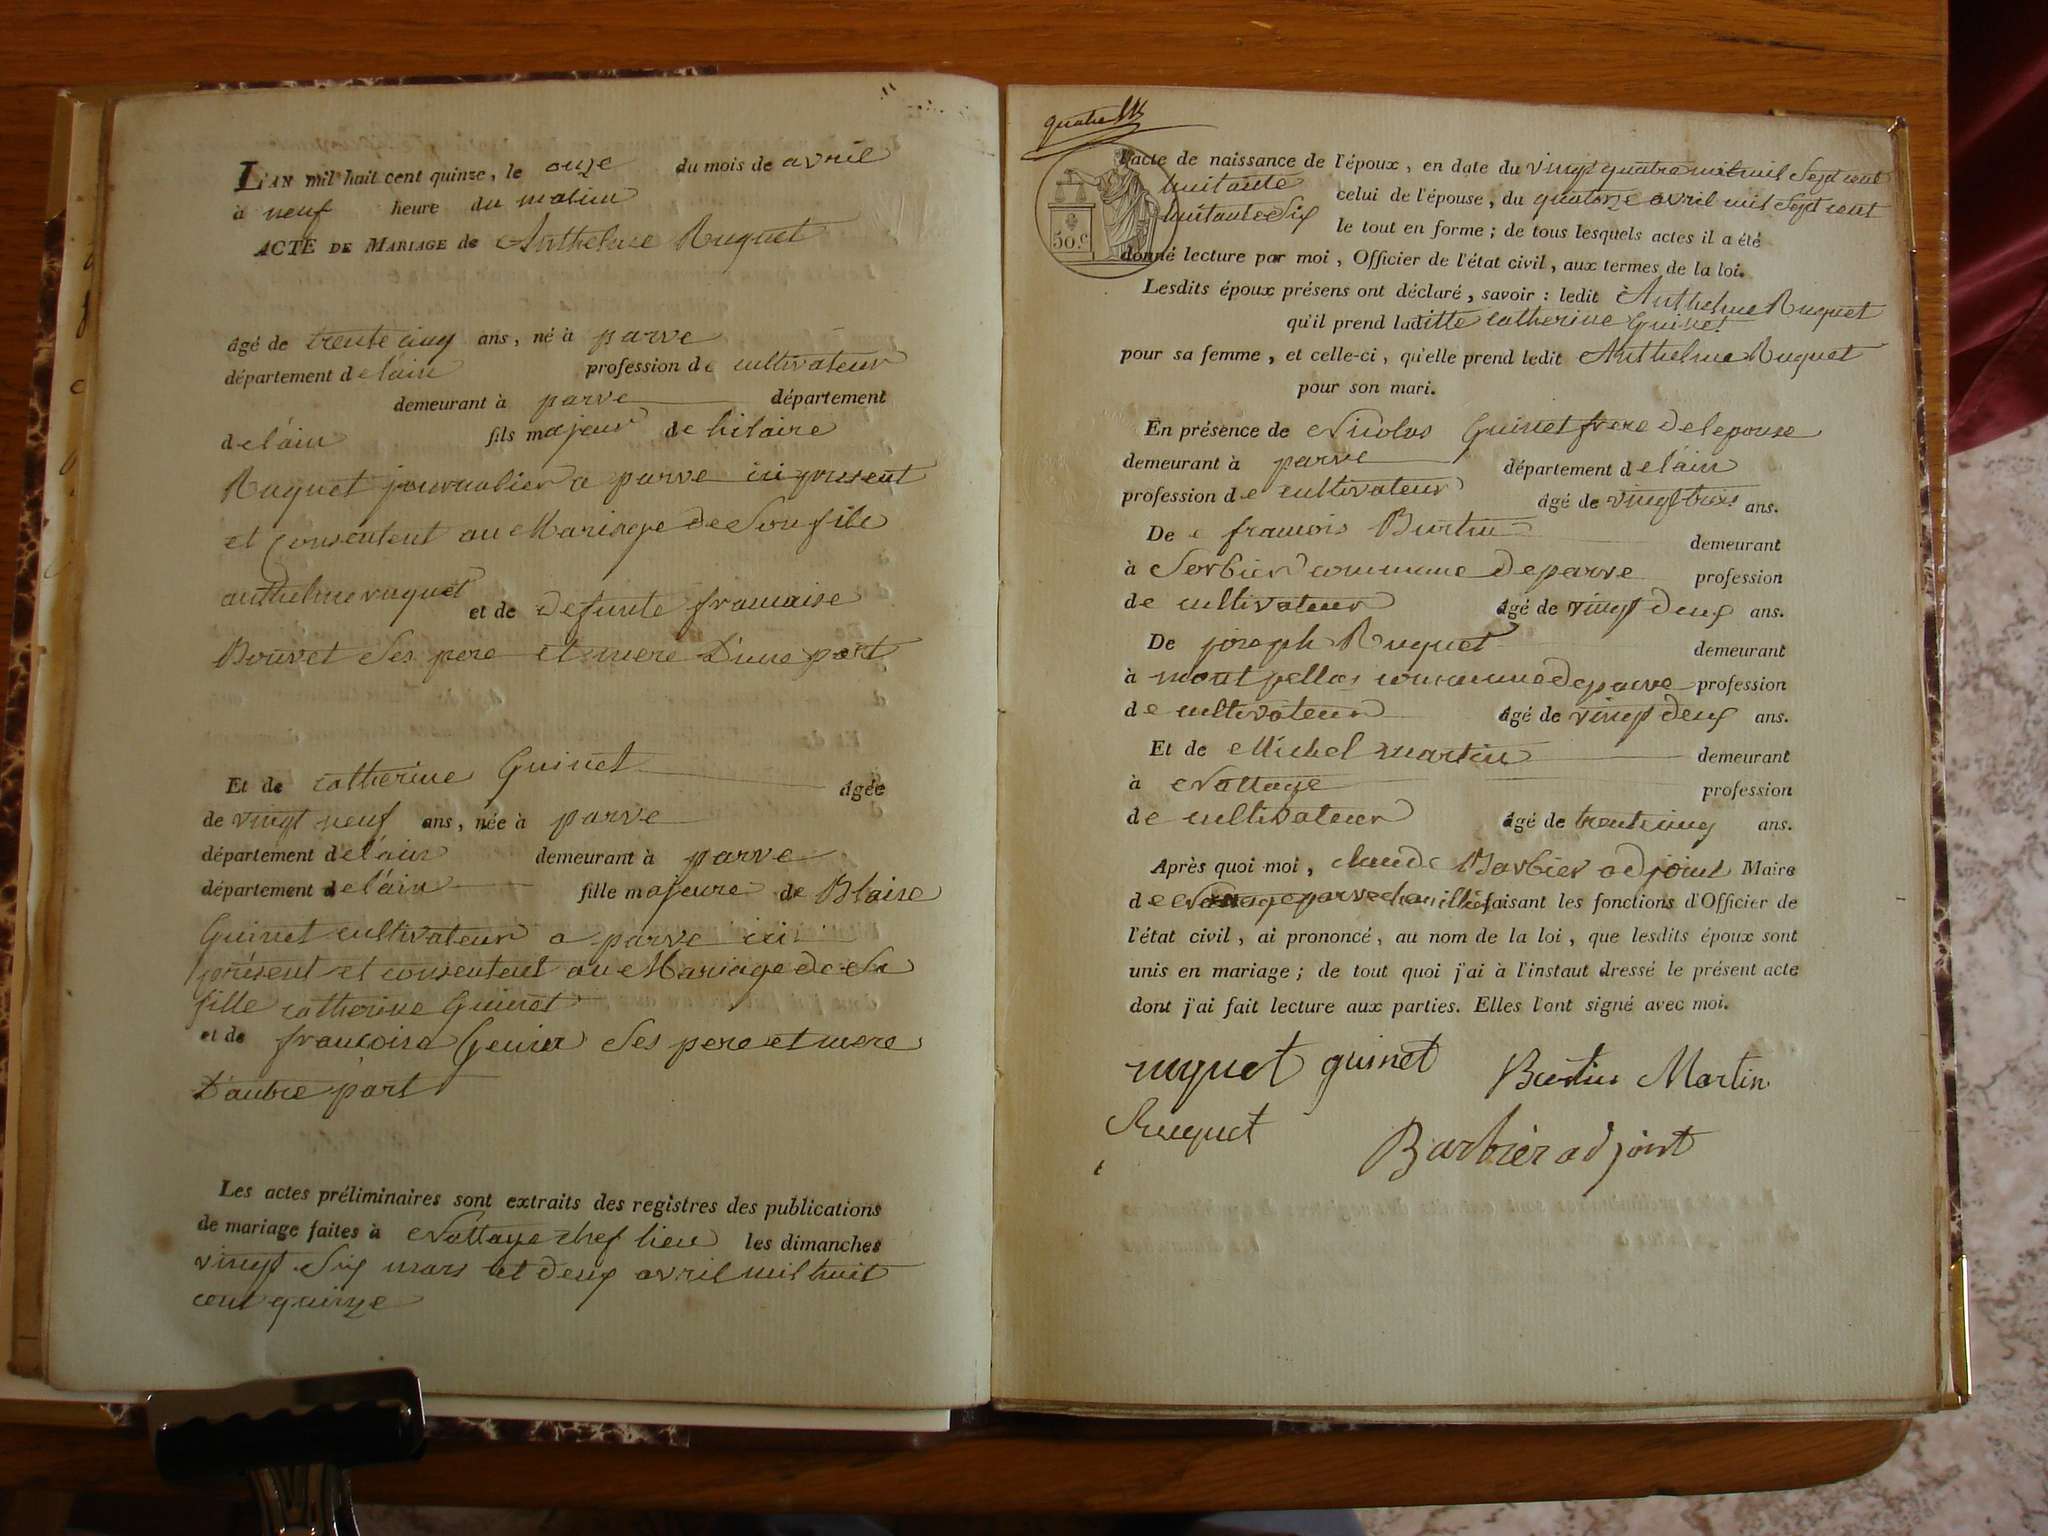 L'AN mil huit cent quinze, le onze du mois de avril
à neuf heure du matin
ACTE DE MARIAGE de Anthelme Ruguet
âgé de trente cinq ans, né à parve
département de l'ain profession de cultivateur
demeurant à parve département
de l'ain fils majeur de hilaire
Ruguet journalier a parve ici present
et Consentent au Mariage de Son fils
anthelme ruguet et de defunte francaise
Bouvet Ses pere et mere D'une part
Et de catherine Guinet âgée
de vingt neuf ans, née à parve
département de l'ain demeurant à parve
département de l'ain fille majeure de Blaise
Guinet cultivateur a parve ici
présent et consentent au Mariage de Sa
fille catherine Guinet
et de francoise Ses pere et mere
D'autre part
Les actes préliminaires sont extraits des registres des publications
de mariage faites à Nattage chef lieu les dimanches
vingt Six mars et deux avril mil huit
cent quinze
quatre
50.c
l'acte de naissance de l'époux, en date du vingt quatre mil Sept cent
huitante celui de l'épouse, du quatorze avril mil Sept cent
huitante Six le tout en forme; de tous lesquels actes il a été
donné lecture par moi, Officier de l'état civil, aux termes de la loi.
Lesdits époux présens ont déclaré, savoir: ledit Anthelme Ruguet
qu'il prend laditte catherine Guinet
pour sa femme, et celle-ci, qu'elle prend ledit Anthelme Ruguet
pour son mari.
En présence de Nicolas Guinet frere de l'epouse
demeurant à parve département de l'ain
profession de cultivateur âgé de vingt trois ans.
De francois Burtin demeurant
à Sorbier commune de parve profession
de cultivateur âgé de vingt deux ans.
De joseph Ruguet demeurant
à montpellas commune de parve profession
de cultivateur âgé de vingt deux ans.
Et de Michel martin demeurant
à Nattage profession
de cultivateur âgé de trente cinq ans.
Après quoi moi, claude Barbier adjoint Maire
de Nattage parve faisant les fonctions d'Officier de
l'état civil, ai prononcé, au nom de la loi, que lesdits époux sont
unis en mariage; de tout quoi j'ai à l'instant dressé le présent acte
dont j'ai fait lecture aux parties. Elles l'ont signé avec moi.
ruguet guinet Burtin Martin
Ruguet Barbier adjoint